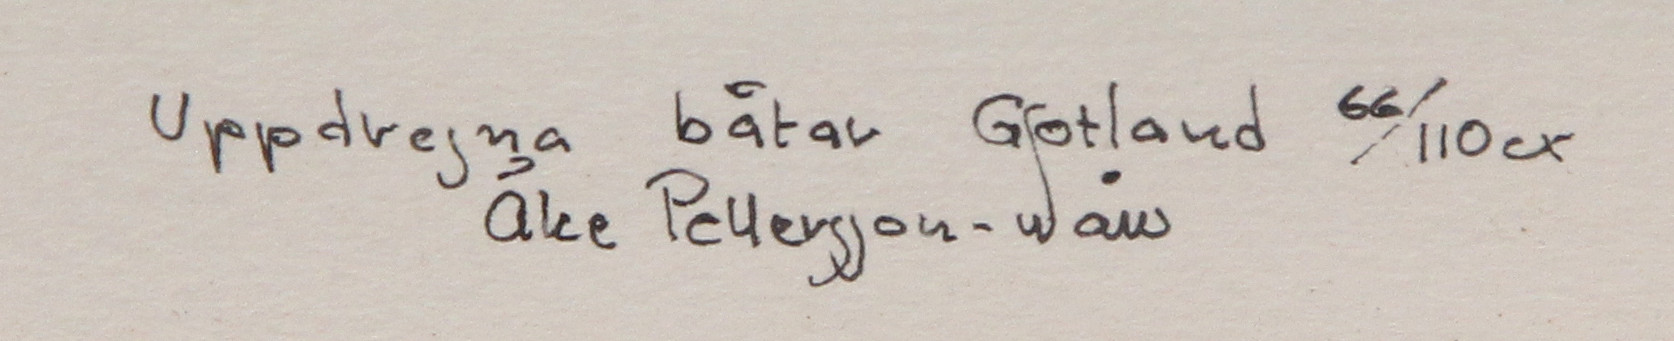 Uppdregna båtar Gotland 66/110 ex
Åke Pettersson-Wåw